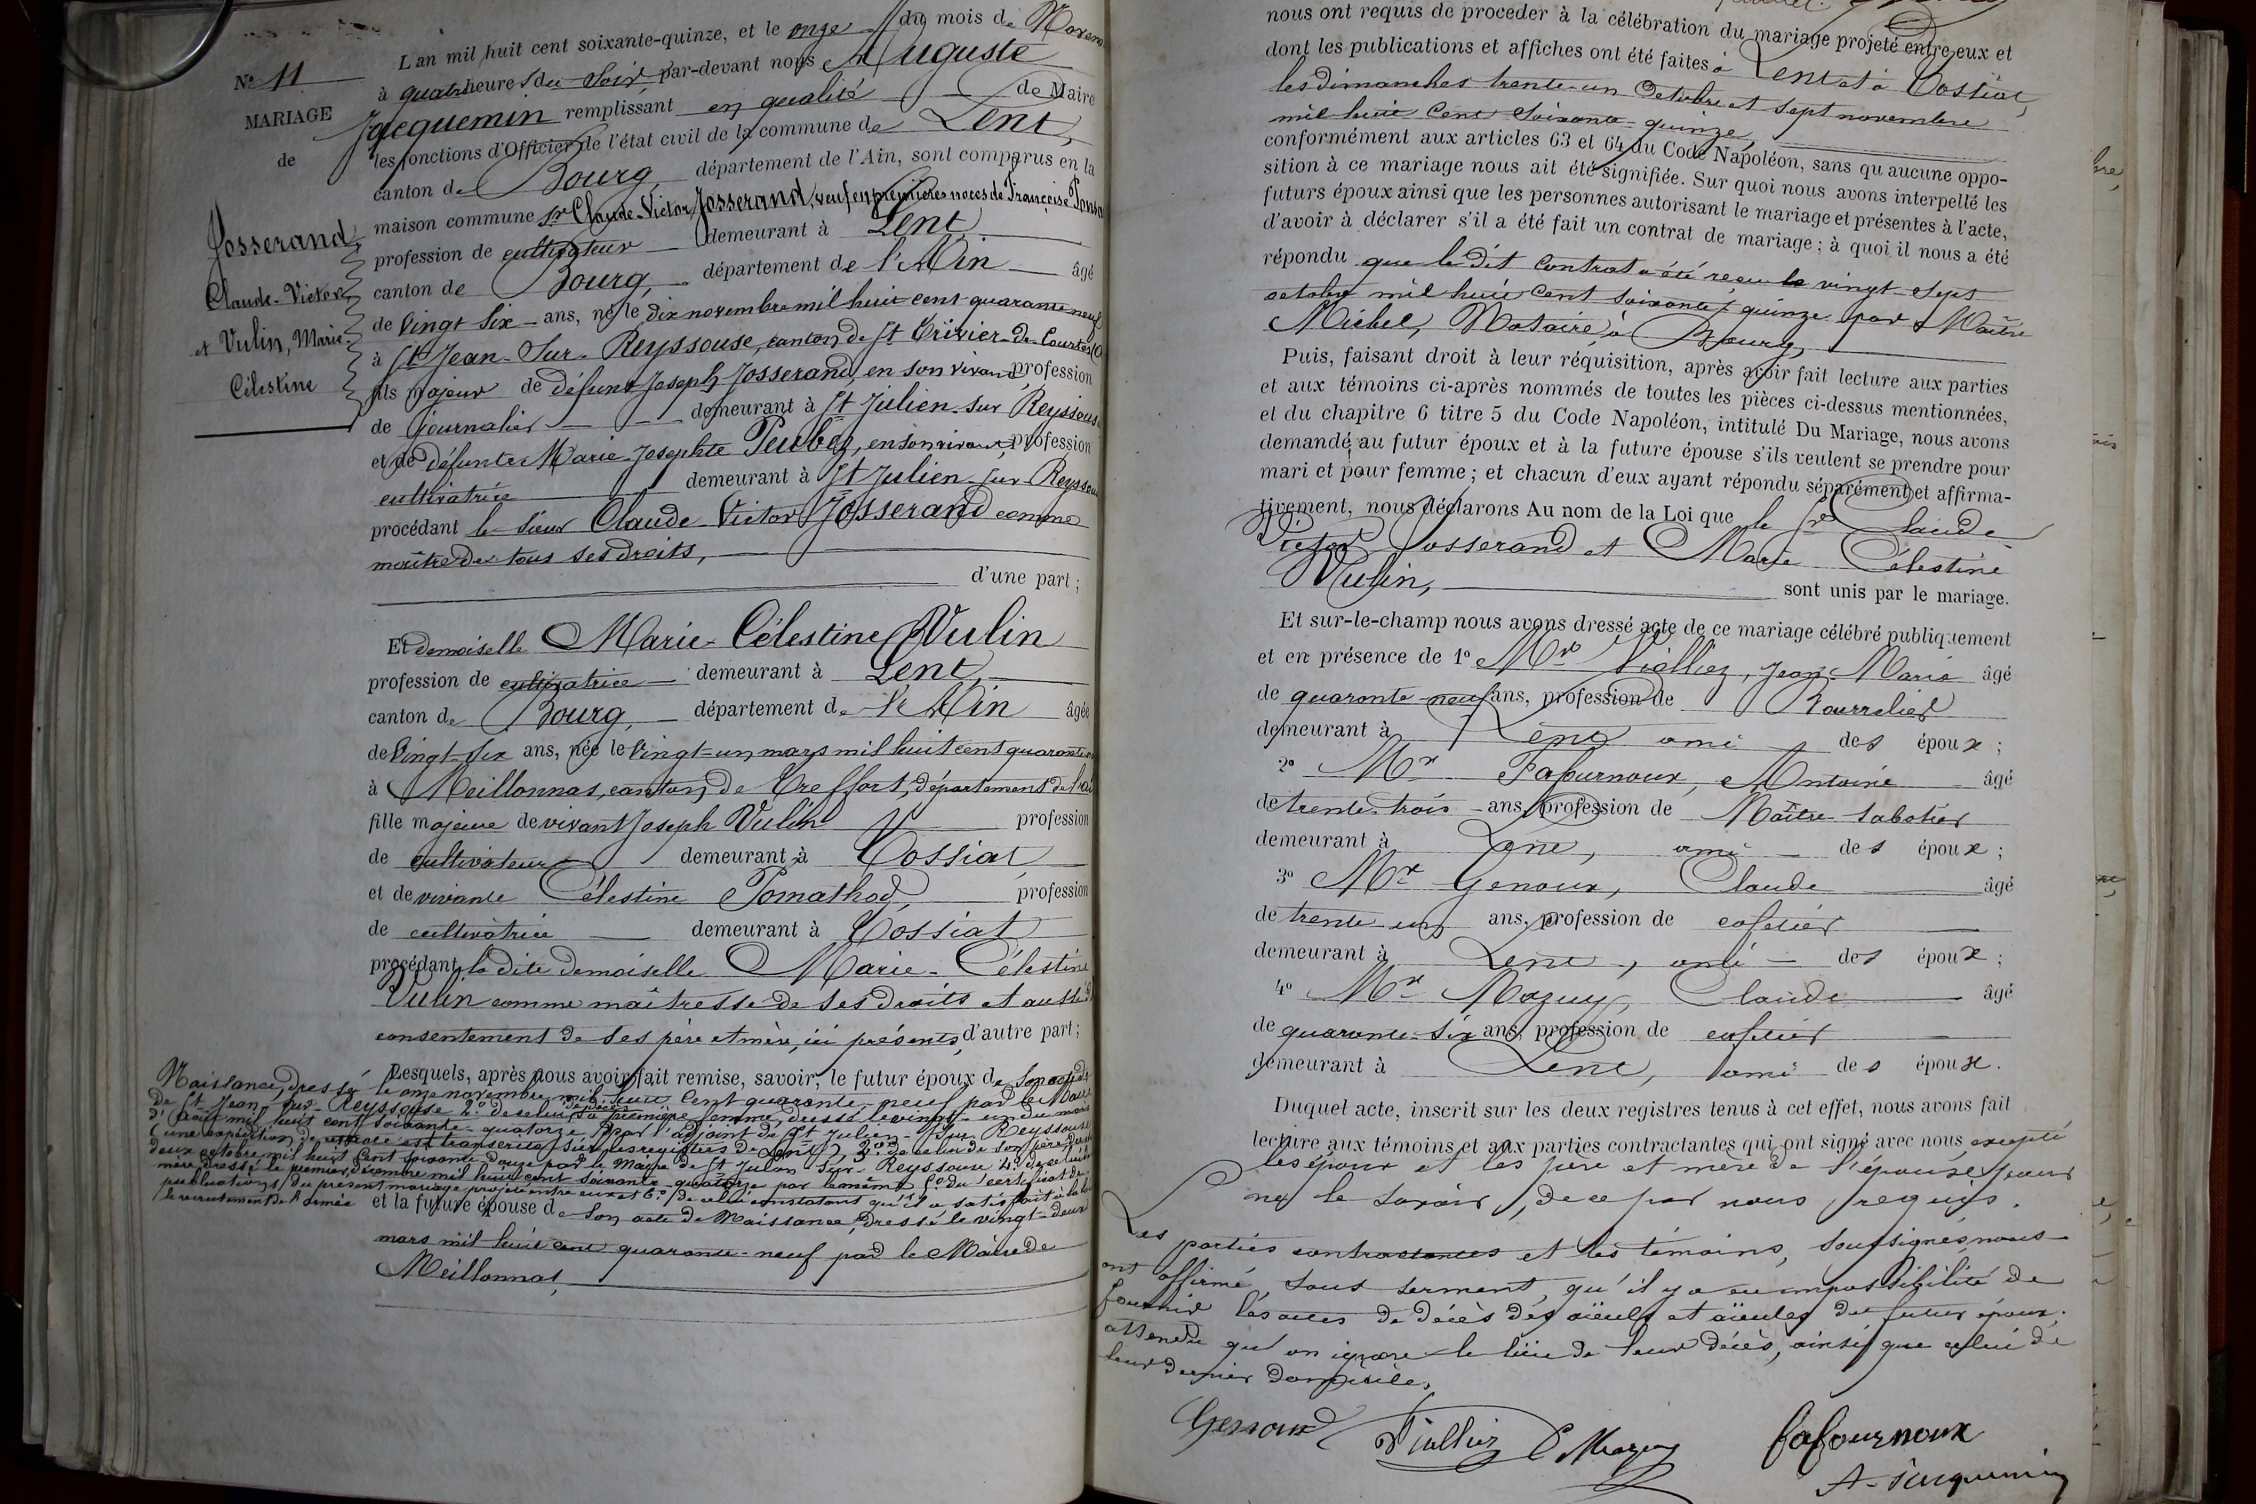 N° 11
MARIAGE
de
Josserand,
Claude-Victor
et Vulin, Marie-
Célestine
L'an mil huit cent soixante-quinze, et le onze du mois de Novem
à quatre heures du soir par-devant nous Auguste
Jacquemin remplissant en qualité de Maire
les fonctions d'Officier de l'état civil de la commune de Lent,
canton de Bourg département de l'Ain, sont comparus en la
maison commune Sr Claude-Victor Josserand, veuf en premières noces de Françoise
profession de cultivateur demeurant à Lent
canton de Bourg, département de l'Ain âgé
de vingt six ans, né le dix novembre mil huit cent quarante neuf
à St Jean-Sur-Reyssouse, canton de St Trivier-de-Courtes
fils majeur de défunt Joseph Josserand, en son vivant profession
de journalier demeurant à St Julien sur Reyssouse
et de défunte Marie Josephte, en son vivant, profession
cultivatrice demeurant à St Julien sur Reyssou
procédant le sieur Claude Victor Josserand comme
maître de tous ses droits,
d'une part ;
Et demoiselle Marie-Célestine Vulin
profession de cultivatrice demeurant à Lent,
canton de Bourg, département de l'Ain âgée
de vingt-six ans, née le vingt-un mars mil huit cent quarante
à Meillonnas, canton de Treffort, département de l'Ain
fille majeure de vivant Joseph Vulin profession
de cultivateur demeurant à Tossiat
et de vivante Célestine Pomathod, profession
de cultivatrice demeurant à Tossiat
procédant la dite demoiselle Marie-Célestine
Vulin comme maîtresse de ses droits et aussi
consentement de ses père et mère, ici présents, d'autre part ;
Lesquels, après nous avoir fait remise, savoir, le futur époux de son acte de
Naissance, dressé le onze novembre mil huit cent quarante-neuf par le Maire
de St Jean-sur-Reyssouse 2° de celui de décès de sa première femme, dressé le vingt-un du mois
d'août mil huit cent soixante-quatorze par l'adjoint de St Julien-sur-Reyssouse
(une expédition de cet acte est transcrite sur les registres de Lent), 3° de celui de son père
deux octobre mil huit cent soixante-douze par le Maire de St Julien-sur-Reyssouse 4° de celui de sa
mère dressé le premier décembre mil huit cent soixante-quatorze par le même 5° du certificat de
publications du présent mariage projeté entre eux et 6° de celui constatant qu'il a satisfait à la loi
le recrutement de l'armée
et la future épouse de son acte de Naissance, dressé le vingt-deux
mars mil huit cent quarante-neuf par le Maire de
Meillonnas,
nous ont requis de procéder à la célébration du mariage projeté entre eux et
dont les publications et affiches ont été faites à Lent et à Tossiat,
les dimanches trente-un Octobre et sept novembre
mil huit cent soixante-quinze,
conformément aux articles 63 et 64 du Code Napoléon, sans qu'aucune oppo-
sition à ce mariage nous ait été signifiée. Sur quoi nous avons interpellé les
futurs époux ainsi que les personnes autorisant le mariage et présentes à l'acte,
d'avoir à déclarer s'il a été fait un contrat de mariage ; à quoi il nous a été
répondu que le dit contrat a été reçu le vingt-sept
octobre mil huit cent soixante-quinze par Maître
Michel, Notaire, à Bourg,
Puis, faisant droit à leur réquisition, après avoir fait lecture aux parties
et aux témoins ci-après nommés de toutes les pièces ci-dessus mentionnées,
et du chapitre 6 titre 5 du Code Napoléon, intitulé Du Mariage, nous avons
demandé au futur époux et à la future épouse s'ils veulent se prendre pour
mari et pour femme ; et chacun d'eux ayant répondu séparément et affirma-
tivement, nous déclarons Au nom de la Loi que le Sr Claude
Victor Josserand et Marie Célestine
Vulin, sont unis par le mariage.
Et sur-le-champ nous avons dressé acte de ce mariage célébré publiquement
et en présence de 1° Mr Viallier, Jean-Marie âgé
de quarante-neuf ans, profession de Bourrelier
demeurant à Lent ami des époux ;
2° Mr Fafournoux, Antoine âgé
de trente-trois ans, profession de Maître sabotier
demeurant à Lent, ami des époux ;
3° Mr Genoux, Claude âgé
de trente-un ans, profession de cafetier
demeurant à Lent, ami des époux ;
4° Mr Mazuy, Claude âgé
de quarante-six ans, profession de cafetier
demeurant à Lent, ami des époux.
Duquel acte, inscrit sur les deux registres tenus à cet effet, nous avons fait
lecture aux témoins et aux parties contractantes qui ont signé avec nous, excepté
les époux et les père et mère de l'épouse pour
ne le savoir, de ce par nous requis.
Les parties contractantes et les témoins, soussignés, nous
ont affirmé, sous serment, qu'il y a eu impossibilité de
fournir les actes de décès des aïeuls et aïeules du futur époux,
attendu qu'on ignore le lieu de leur décès, ainsi que celui de
leur dernier domicile.
Genoux Viallier C Mazuy fafournoux
A. Jacquemin